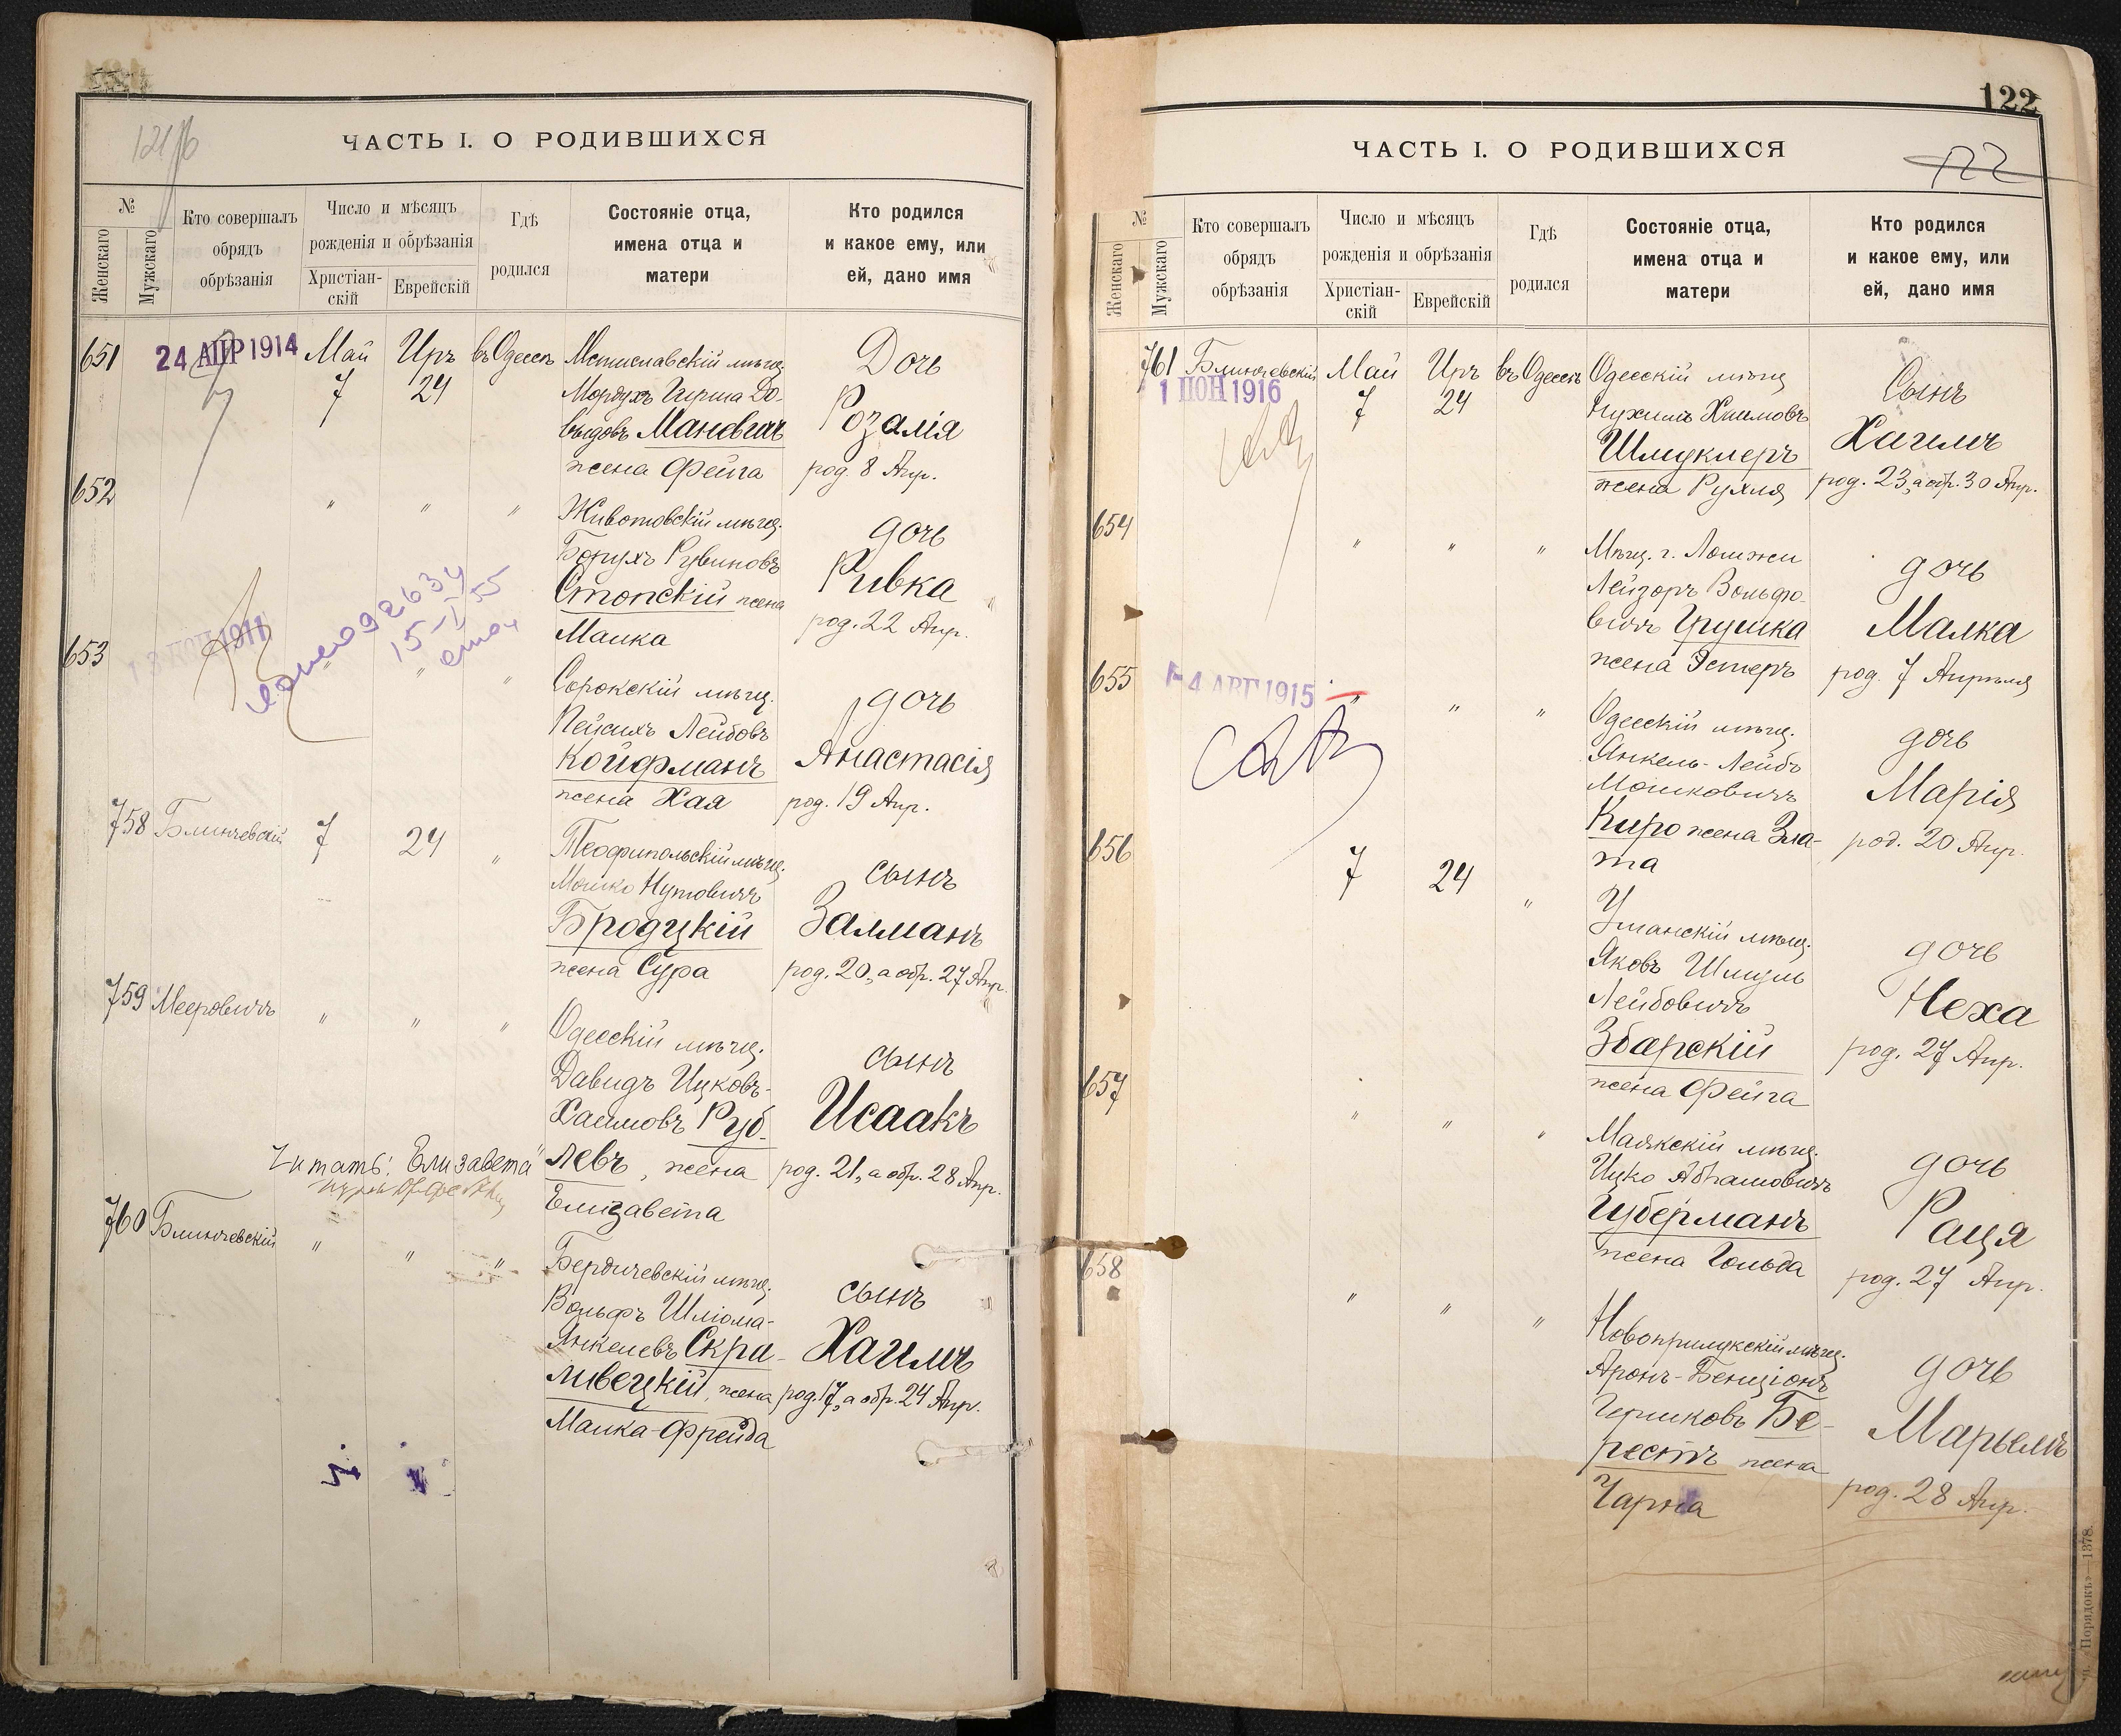 121 об
ЧАСТЬ I. О РОДИВШИХСЯ
№
Женскаго
Мужскаго
Кто совершалъ
обрядъ
обрѣзанія
Число и мѣсяцъ
рожденія и обрѣзанія
Христіан-
скій
Еврейскій
Гдѣ
родился
Состояніе отца,
имена отца и
матери
Кто родился
и какое ему, или
ей, дано имя
651
24 АПР 1914
Май
7
Иръ
24
въ Одессѣ
Мстиславскій мѣщ.
Мордухъ Гирша До-
выдовъ Маневичъ
жена Фейга
Дочь
Розалія
род. 8 Апр.
652
" " "
Животовскій мѣщ.
Борухъ Рувиновъ
Стопскій жена
Малка
дочь
Ривка
род. 22 Апр.
653
1911
092634
15-I 55
" " "
Сорокскій мѣщ.
Пейсихъ Лейбовъ
Койфманъ
жена Хая
дочь
Анастасія
род. 19 Апр.
758
Блинчевскій
7
24
"
Теофипольскій мѣщ.
Мошко Нутовичъ
Бродцкій
жена Сура
сынъ
Залманъ
род. 20, а обр. 27 Апр.
759
Мееровичъ
" " "
Одесскій мѣщ.
Давидъ Ицковъ-
Хаимовъ Руб-
левъ, жена
Елизавета
сынъ
Исаакъ
род. 21, а обр. 28 Апр.
Читать: "Елизавета"
760
Блинчевскій
" " "
Бердичевскій мѣщ.
Вольфъ Шліома-
Янкелевъ Скра-
ливецкій, жена
Малка-Фрейда
сынъ
Хаимъ
род. 17, а обр. 24 Апр.
122
ЧАСТЬ I. О РОДИВШИХСЯ
122
№
Женскаго
Мужскаго
Кто совершалъ
обрядъ
обрѣзанія
Число и мѣсяцъ
рожденія и обрѣзанія
Христіан-
скій
Еврейскій
Гдѣ
родился
Состояніе отца,
имена отца и
матери
Кто родился
и какое ему, или
ей, дано имя
761
Блинчевскій
1 ІЮН 1916
Май
7
Иръ
24
въ Одессѣ
Одесскій мѣщ.
Нухимъ Хаимовъ
Шмуклеръ
жена Рухля
Сынъ
Хаимъ
род. 23, а обр. 30 Апр.
654
" " "
Мѣщ. г. Ломжи
Лейзоръ Вольфо-
вичъ Грушка
жена Эстеръ
дочь
Малка
род. 7 Апрѣля
655
4 АВГ 1915
" " "
Одесскій мѣщ.
Янкель-Лейбъ
Мошковичъ
Киро жена Зла-
та
дочь
Марія
род. 20 Апр.
656
7
24
"
Уманскій мѣщ.
Яковъ Шмуль
Лейбовичъ
Збарскій
жена Фейга
дочь
Неха
род. 27 Апр.
657
" " "
Маякскій мѣщ.
Ицко Абрамовичъ
Губерманъ
жена Гольда
дочь
Раця
род. 27 Апр.
658
" " "
Новоприлукскій мѣщ.
Аронъ-Бенціонъ
Гершковъ Бе-
рестъ жена
Чарна
дочь
Марьемъ
род. 28 Апр.
«Порядокъ»—1378.